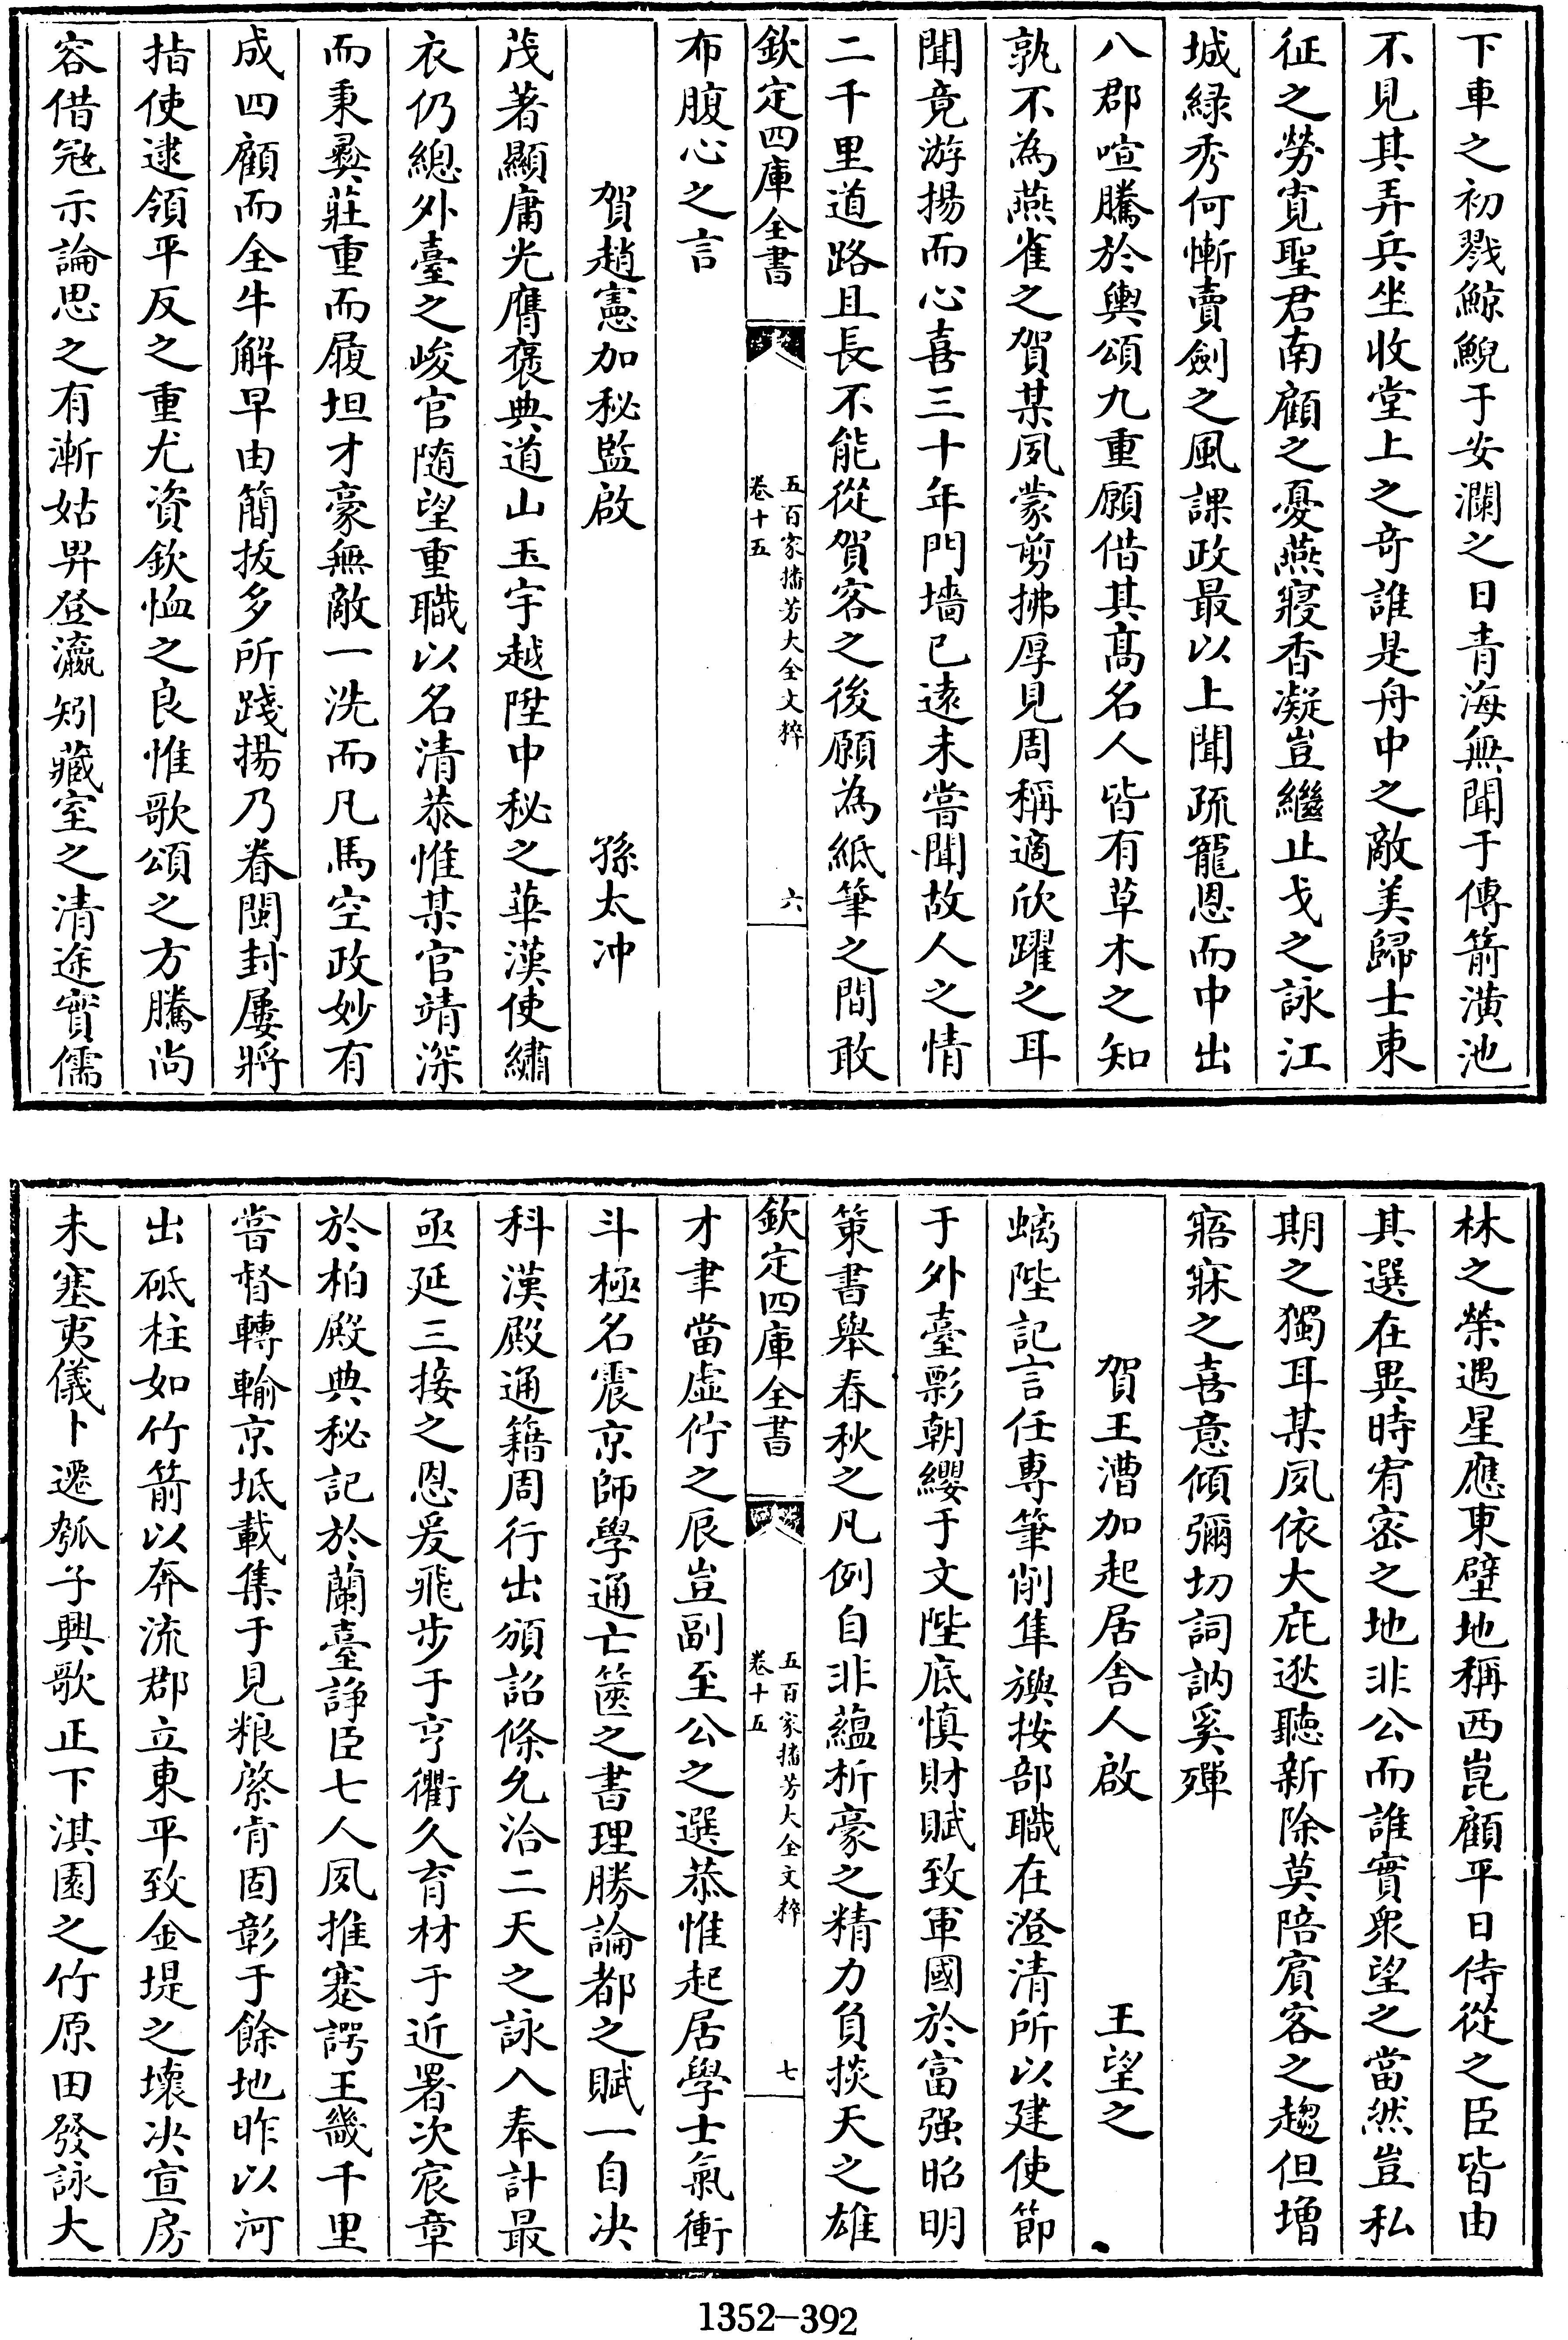 下車之初戮鯨鯢于安瀾之日青海無聞于傳箭潢池
不見其弄兵坐收堂上之奇誰是舟中之敵美歸士東
征之勞寬聖君南顧之憂燕寢香凝豈繼止戈之詠江
城緑秀何慚賣劍之風課政最以上聞疏寵恩而中出
八郡喧騰於輿頌九重願借其髙名人皆有草木之知
孰不為燕雀之賀某夙蒙剪拂厚見周稱適欣躍之耳
聞竟游揚而心喜三十年門墻已遠未嘗聞故人之情
二千里道路且長不能從賀客之後願為紙筆之間敢
欽定四庫全書 五百家播芳大全文粹 卷十五 六
布腹心之言
賀趙憲加秘監啟 孫太冲
茂著顯庸光膺褒典道山玉宇越陞中秘之華漢使繡
衣仍總外臺之峻官隨望重職以名清恭惟某官靖深
而秉彞莊重而履坦才豪無敵一洗而凡馬空政妙有
成四顧而全牛解早由簡拔多所踐揚乃眷閩封屢將
指使逮領平反之重尤資欽恤之良惟歌頌之方騰尚
容借㓂示論思之有漸姑畀登瀛矧藏室之清途實儒
林之榮遇星應東壁地稱西崑顧平日侍從之臣皆由
其選在異時宥密之地非公而誰實衆望之當然豈私
期之獨耳某夙依大庇逖聽新除莫陪賓客之趨但增
寤寐之喜意傾彌切詞訥奚殫
賀王漕加起居舍人啟 王望之
螭陛記言任專筆削隼旟按部職在澄清所以建使節
于外臺影朝纓于文陛底慎財賦致軍國於富强昭明
策書舉春秋之凡例自非蘊析豪之精力負掞天之雄
欽定四庫全書 五百家播芳大全文粹 卷十五 七
才聿當虛佇之辰豈副至公之選恭惟起居學士氣衝
斗極名震京師學通亡篋之書理勝論都之賦一自决
科漢殿通籍周行出頒詔條允洽二天之詠入奉計最
亟延三接之恩爰飛步于亨衢久育材于近署次宸章
於柏殿典秘記於蘭臺諍臣七人夙推蹇諤王畿千里
嘗督轉輸京坻載集于見粮綮肯固彰于餘地昨以河
出砥柱如竹箭以奔流郡立東平致金堤之壞决宣房
未塞夷儀卜遷瓠子興歌正下淇園之竹原田發詠大
1352-392